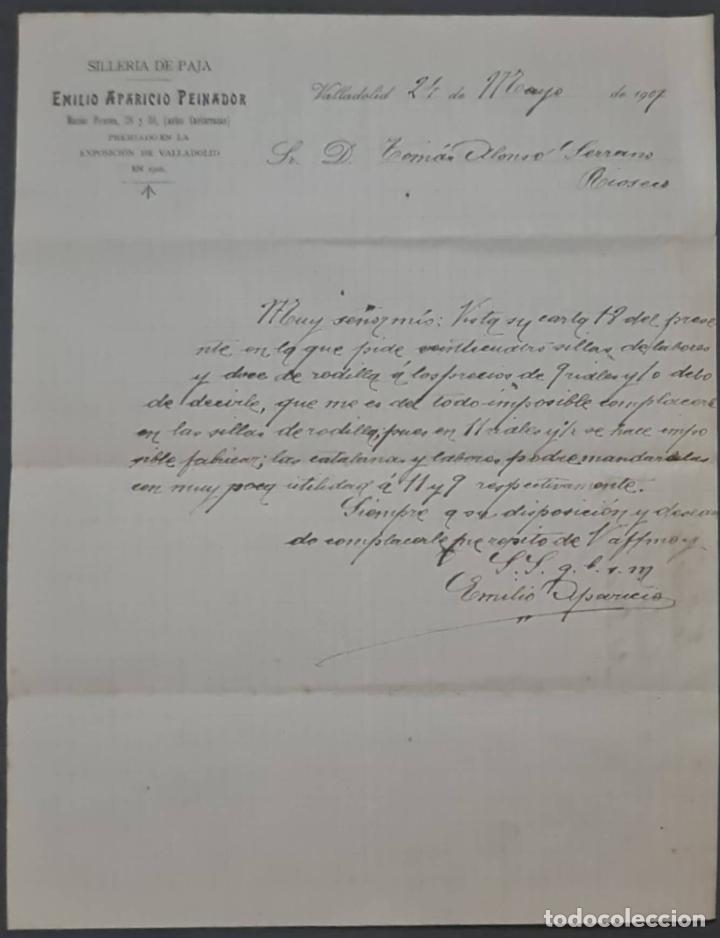 SILLERIA DE PAJA
EMILIO APARICIO PEINADOR
Macías Picavea, 28 y 30, (antes Cantarranas)
PREMIADO EN LA
EXPOSICIÓN DE VALLADOLID
EN 1906.
Valladolid 24 de Mayo de 1907
Sr. D. Tomás Alonso Serrano
Rioseco
Muy señor mio: Vista su carta 18 del prese
nte en la que pide veinticuatro sillas de labores
y doce de rodilla á los precios de 9 riales y 10 debo
de decirle, que me es del todo imposible complacerle
en las sillas de rodilla, pues en 11 riales y ½ se hace impo
sible fabricar; las catalanas y labores podre mandarselas
con muy poca utilidad á 11 y 9 respectivamente.
Siempre a su disposición y desean
do complacerle me repito de V affmo y
S. S. q. b. s. m
Emilio Aparicio
todocoleccion